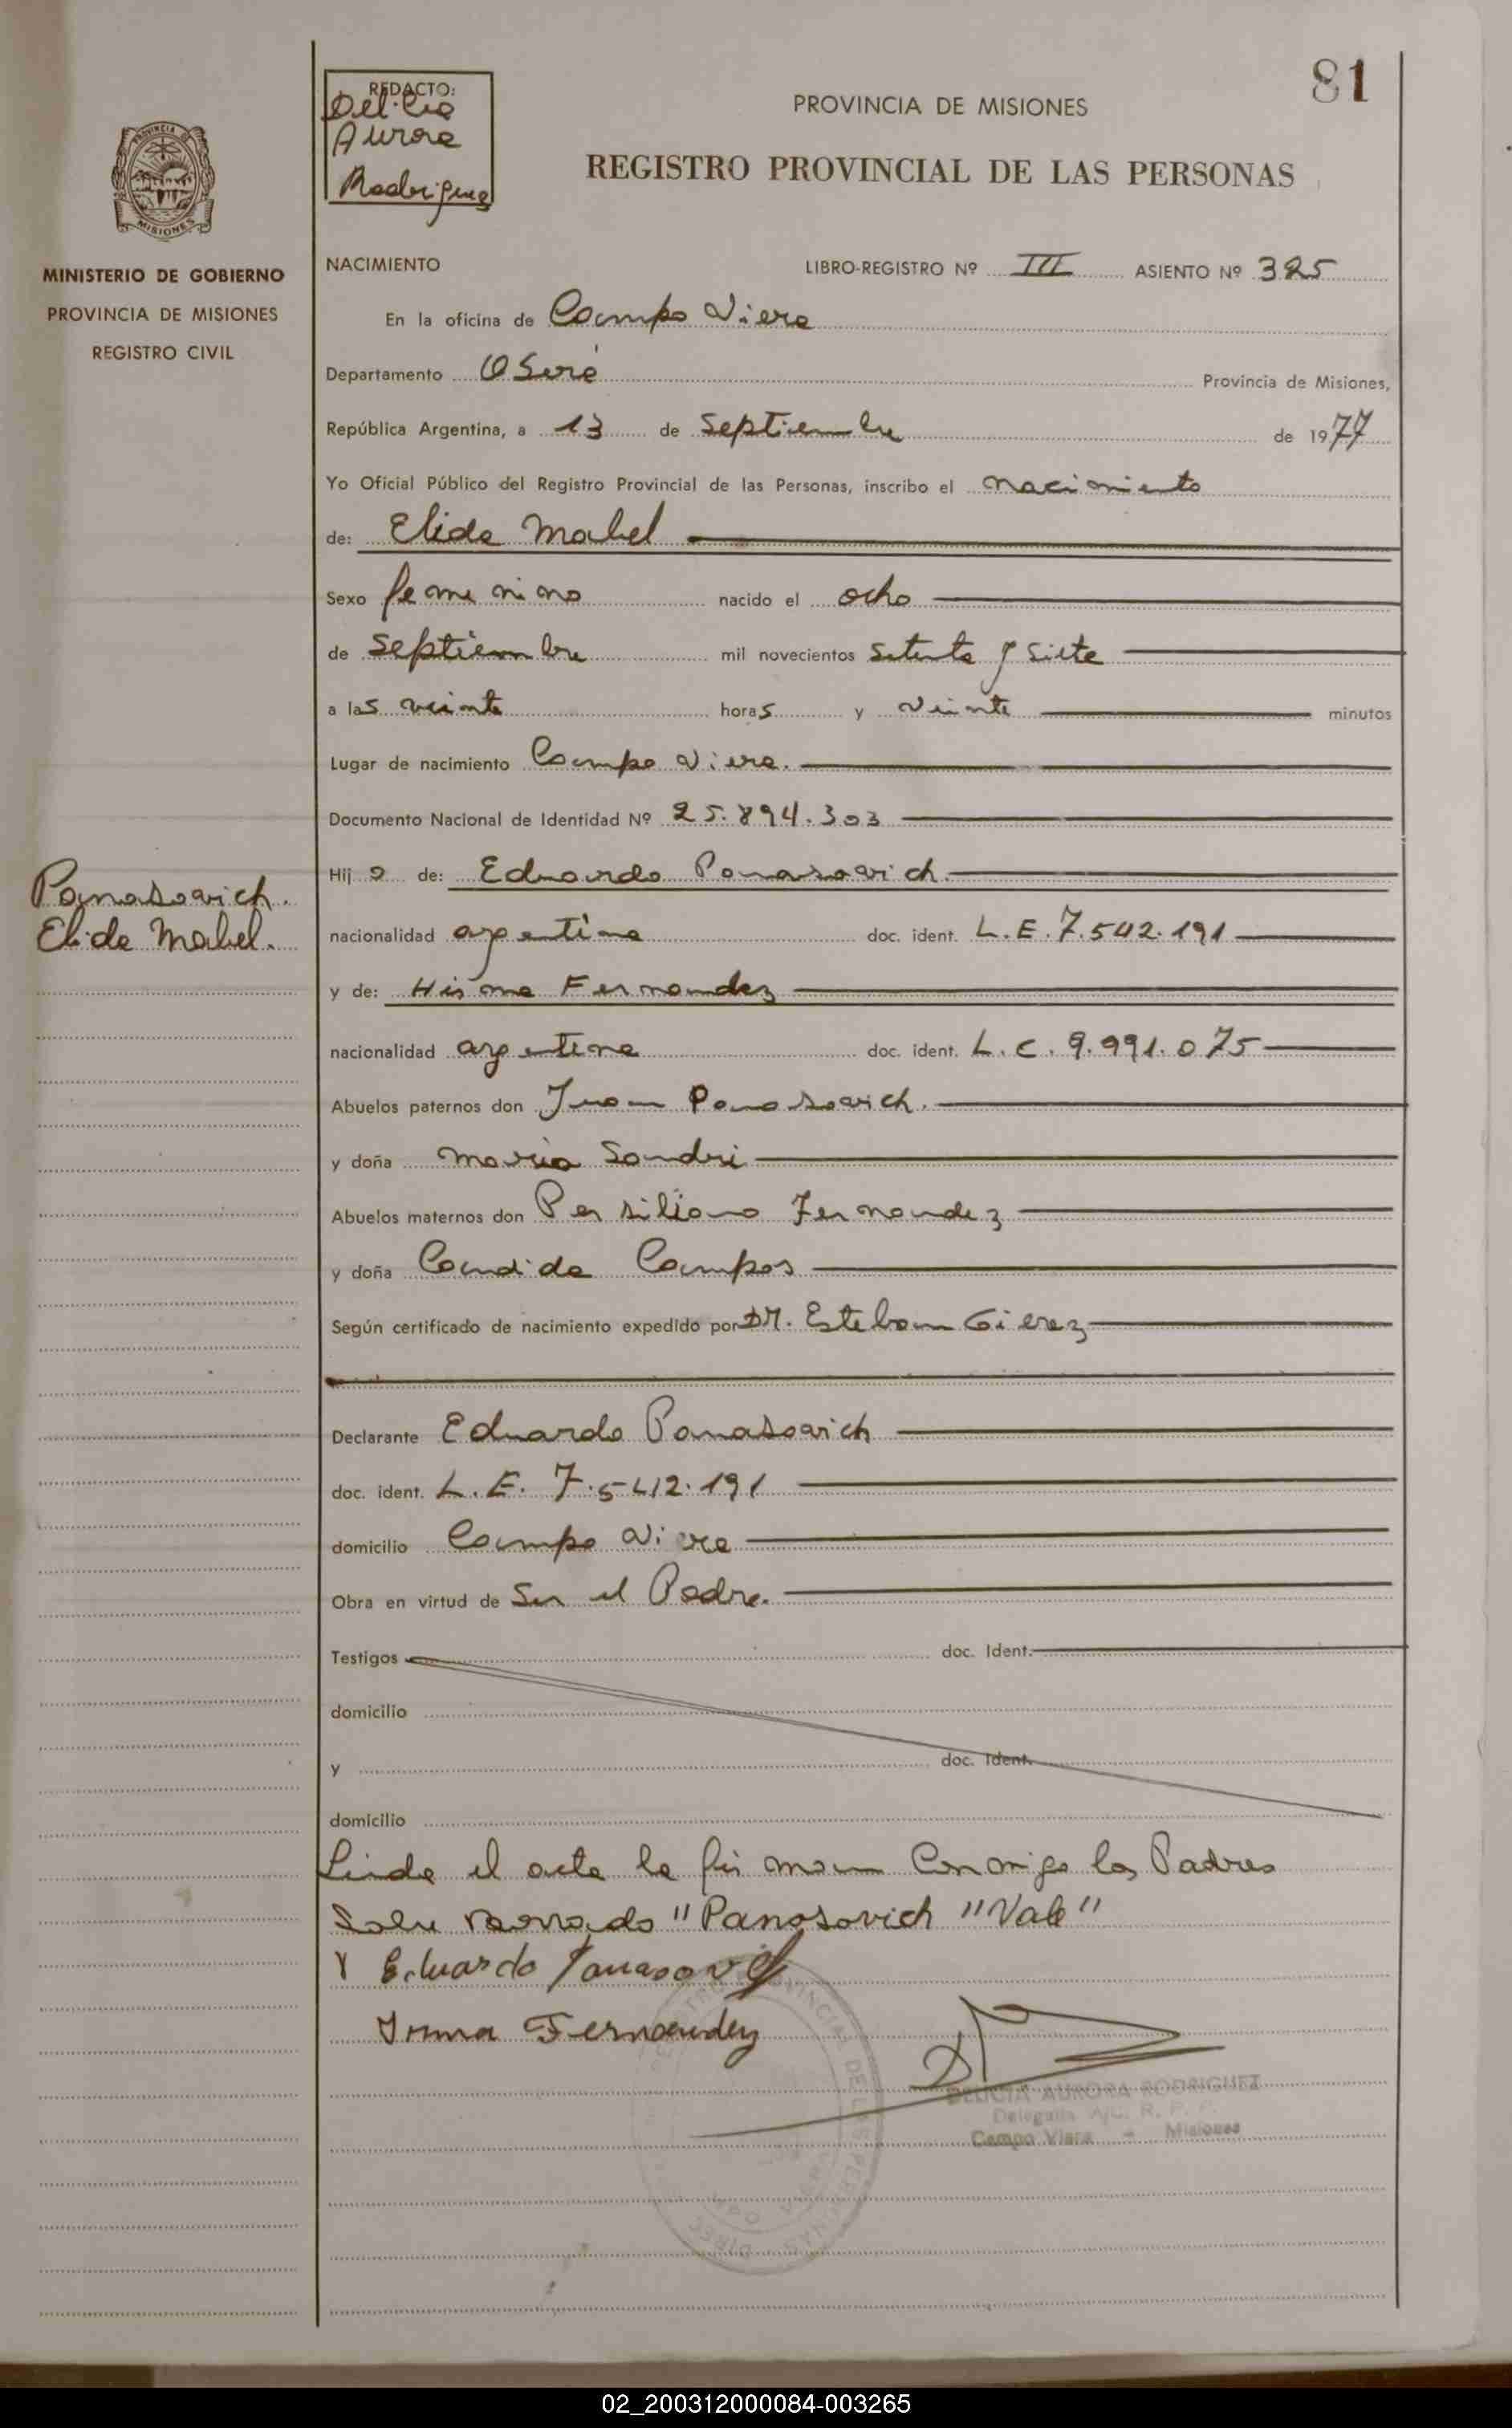 81
REDACTO:
Delicia
Aurora
Rodriguez
PROVINCIA DE MISIONES
REGISTRO PROVINCIAL DE LAS PERSONAS
PROVINCIA DE
MISIONES
MINISTERIO DE GOBIERNO
PROVINCIA DE MISIONES
REGISTRO CIVIL
NACIMIENTO LIBRO-REGISTRO Nº III ASIENTO Nº 325
En la oficina de Campo Viera
Departamento Oberá Provincia de Misiones,
República Argentina, a 13 de Septiembre de 1977
Yo Oficial Público del Registro Provincial de las Personas, inscribo el nacimiento
de: Elida Mabel
Sexo femenino nacido el ocho
de Septiembre mil novecientos setenta y siete
a las veinte horas y veinte minutos
Lugar de nacimiento Campo Viera.
Documento Nacional de Identidad Nº 25.894.303
Hija de: Eduardo Panasovich.
Panasovich.
Elida Mabel.
nacionalidad argentina doc. ident. L.E. 7.542.191
y de: Fernandez
nacionalidad argentina doc. ident. L.C. 9.991.075
Abuelos paternos don Juan Panasovich.
y doña Maria Sandri
Abuelos maternos don Persiliano Fernandez
y doña Candida Campos
Según certificado de nacimiento expedido por DR. Esteban Gierez
Declarante Eduardo Panasovich
doc. ident. L.E. 7.542.191
domicilio Campo Viera
Obra en virtud de Ser el Padre.
Testigos doc. Ident.
domicilio
y doc. Ident.
domicilio
Leida el acta la firman Conmigo los Padres
Sobre raspado "Panasovich "Vale"
Eduardo Panasovich
Irma Fernandez
DELICIA AURORA RODRIGUEZ
Delegada A/C. R. P. P.
Campo Viera - Misiones
02_200312000084-003265